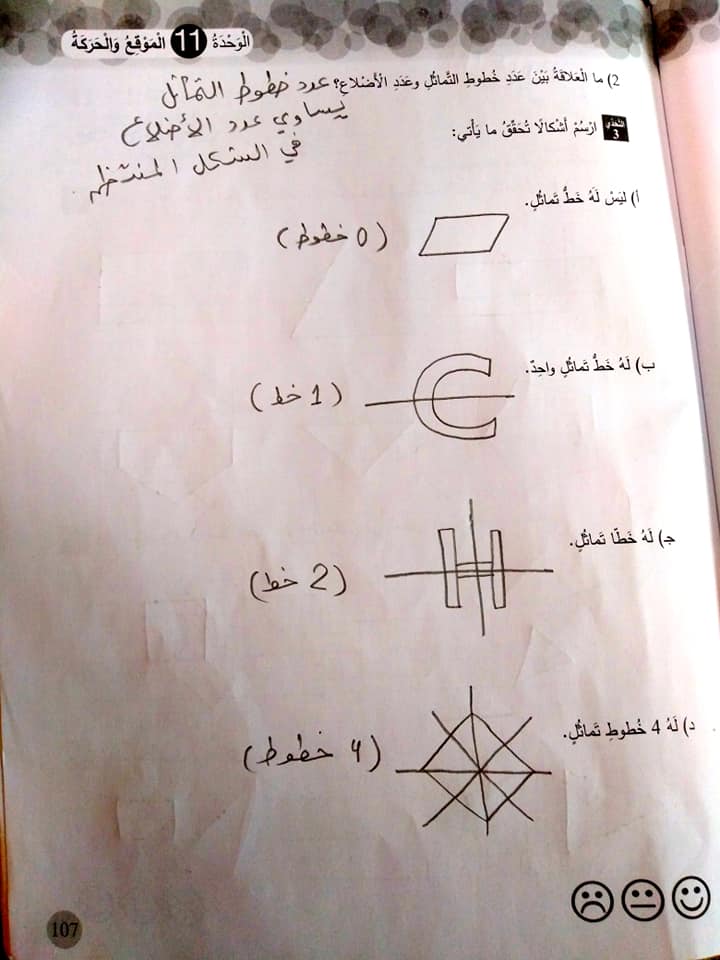 الْوَحْدَةُ 11 الْمَوْقِعُ وَالْحَرَكَةُ
2) ما الْعَلاقَةُ بَيْنَ عَدَدِ خُطوطِ التَّماثُلِ وعَدَدِ الْأَضْلاعِ؟ عدد خطوط التماثل
يساوي عدد الأضلاع
في الشكل المنتظم
التَّحَدّي 3 ارْسُمْ أَشْكالًا تُحَقِّقُ ما يَأتي:
أ) ليَسْ لَهُ خَطُّ تَماثُلٍ.
(0 خطوط)
ب) لَهُ خَطُّ تَماثُلٍ واحِدٌ.
(1 خط)
ج) لَهُ خَطّا تَماثُلٍ.
(2 خط)
د) لَهُ 4 خُطوطِ تَماثُلٍ.
(4 خطوط)
107